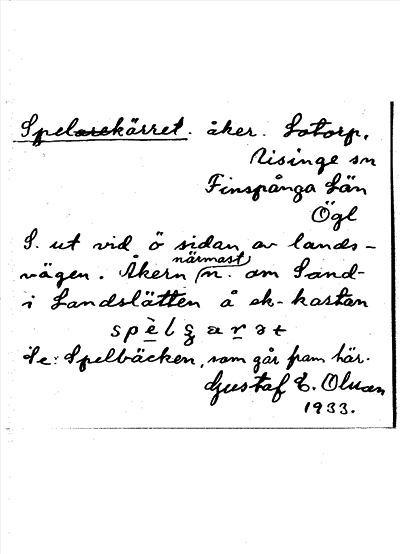 Spelkärret. åker. Lotorp,
Risinge sn
Finspånga Län
Ögl
S. ut vid ö sidan av lands-
vägen. Åkern närmast n. om Sand-
i Landslätten å ek-kartan
Se: Spelbäcken, som går fram här.
Gustaf E. Olsson
1933.